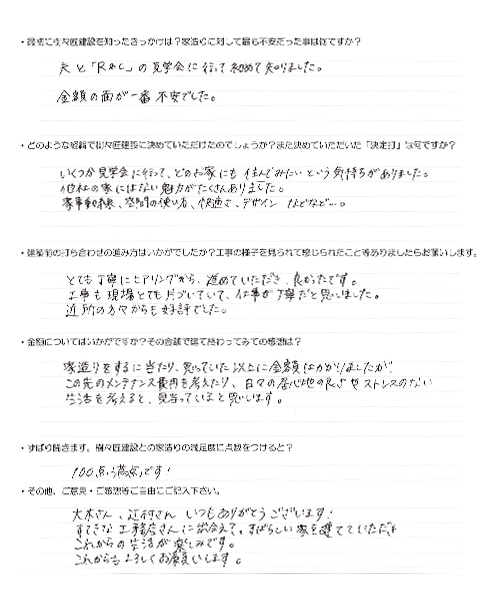 ・最初に樹々匠建設を知ったきっかけは？家造りに対して最も不安だった事は何ですか？
夫と「R+C」の見学会に行って初めて知りました。
金額の面が一番不安でした。
・どのような経緯で樹々匠建設に決めていただけたのでしょうか？また決めていただいた「決定打」は何ですか？
いくつか見学会に行って、どのお家にも住んでみたいという気持ちがありました。
他社の家にはない魅力がたくさんありました。
家事動線、空間の使い方、快適さ、デザイン などなど…。
・建築前の打ち合わせの進み方はいかがでしたか？工事の様子を見られて感じられたこと等ありましたらお願いします。
とても丁寧にヒアリングから、進めていただき、良かったです。
工事も現場とても片づいていて、仕事が丁寧だと思いました。
近所の方々からも好評でした。
・金額についてはいかがですか？その金額で建て終わってみての感想は？
家造りをするに当たり、思っていた以上に金額はかかりましたが
この先のメンテナンス費用を考えたり、日々の居心地の良さやストレスのない
生活を考えると、見合っていると思います。
・ずばり聞きます。樹々匠建設との家造りの満足度に点数をつけると？
100点満点です！
・その他、ご意見・ご感想等ご自由にご記入下さい。
大木さん、辻村さん いつもありがとうございます！
すてきな工務店さんに出会えて、すばらしい家を建てていただき
これからの生活が楽しみです。
これからもよろしくお願いします。